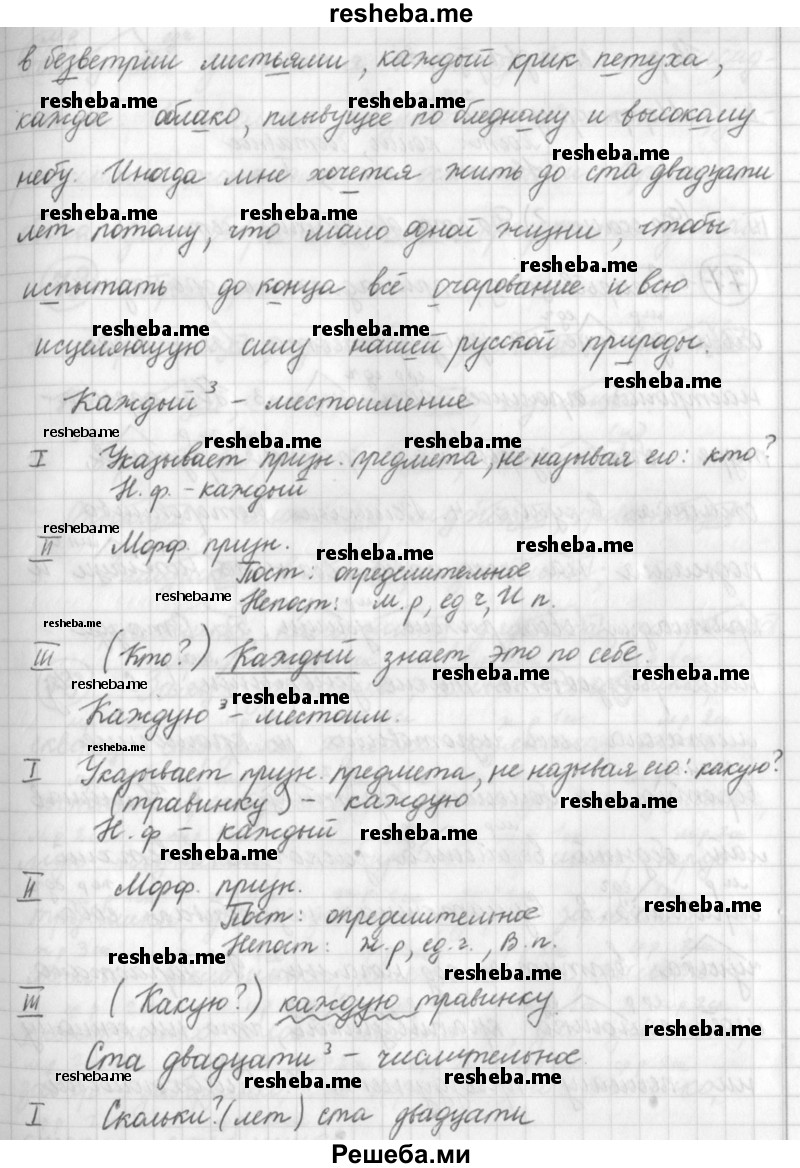 resheba.me
в безветрии листьями, каждый крик петуха,
resheba.me resheba.me
каждое облако, плывущее по бледному и высокому
resheba.me
небу. Иногда мне хочется жить до ста двадцати
resheba.me resheba.me
лет потому, что мало одной жизни, чтобы
resheba.me
испытать до конца всё очарование и всю
resheba.me resheba.me
исцеляющую силу нашей русской природы.
resheba.me
Каждый³ - местоимение
resheba.me resheba.me resheba.me
I Указывает призн. предмета, не называя его: кто?
Н. ф. - каждый
resheba.me
II Морф. призн.
resheba.me resheba.me
Пост: определительное
resheba.me
Непост: м.р, ед ч, И п.
resheba.me
III (Кто?) Каждый знает это по себе.
resheba.me resheba.me resheba.me
resheba.me
Каждую³ - местоим.
resheba.me
I Указывает призн. предмета, не называя его: какую?
(травинку) - каждую
resheba.me
Н. ф - каждый
resheba.me
resheba.me
II Морф. призн.
resheba.me
Пост: определительное
Непост: ж.р, ед.ч., В.п.
resheba.me
resheba.me
III (Какую?) каждую травинку
resheba.me
Ста двадцати³ - числительное.
resheba.me resheba.me resheba.me
I Скольки? (лет) ста двадцати
Решеба.ми